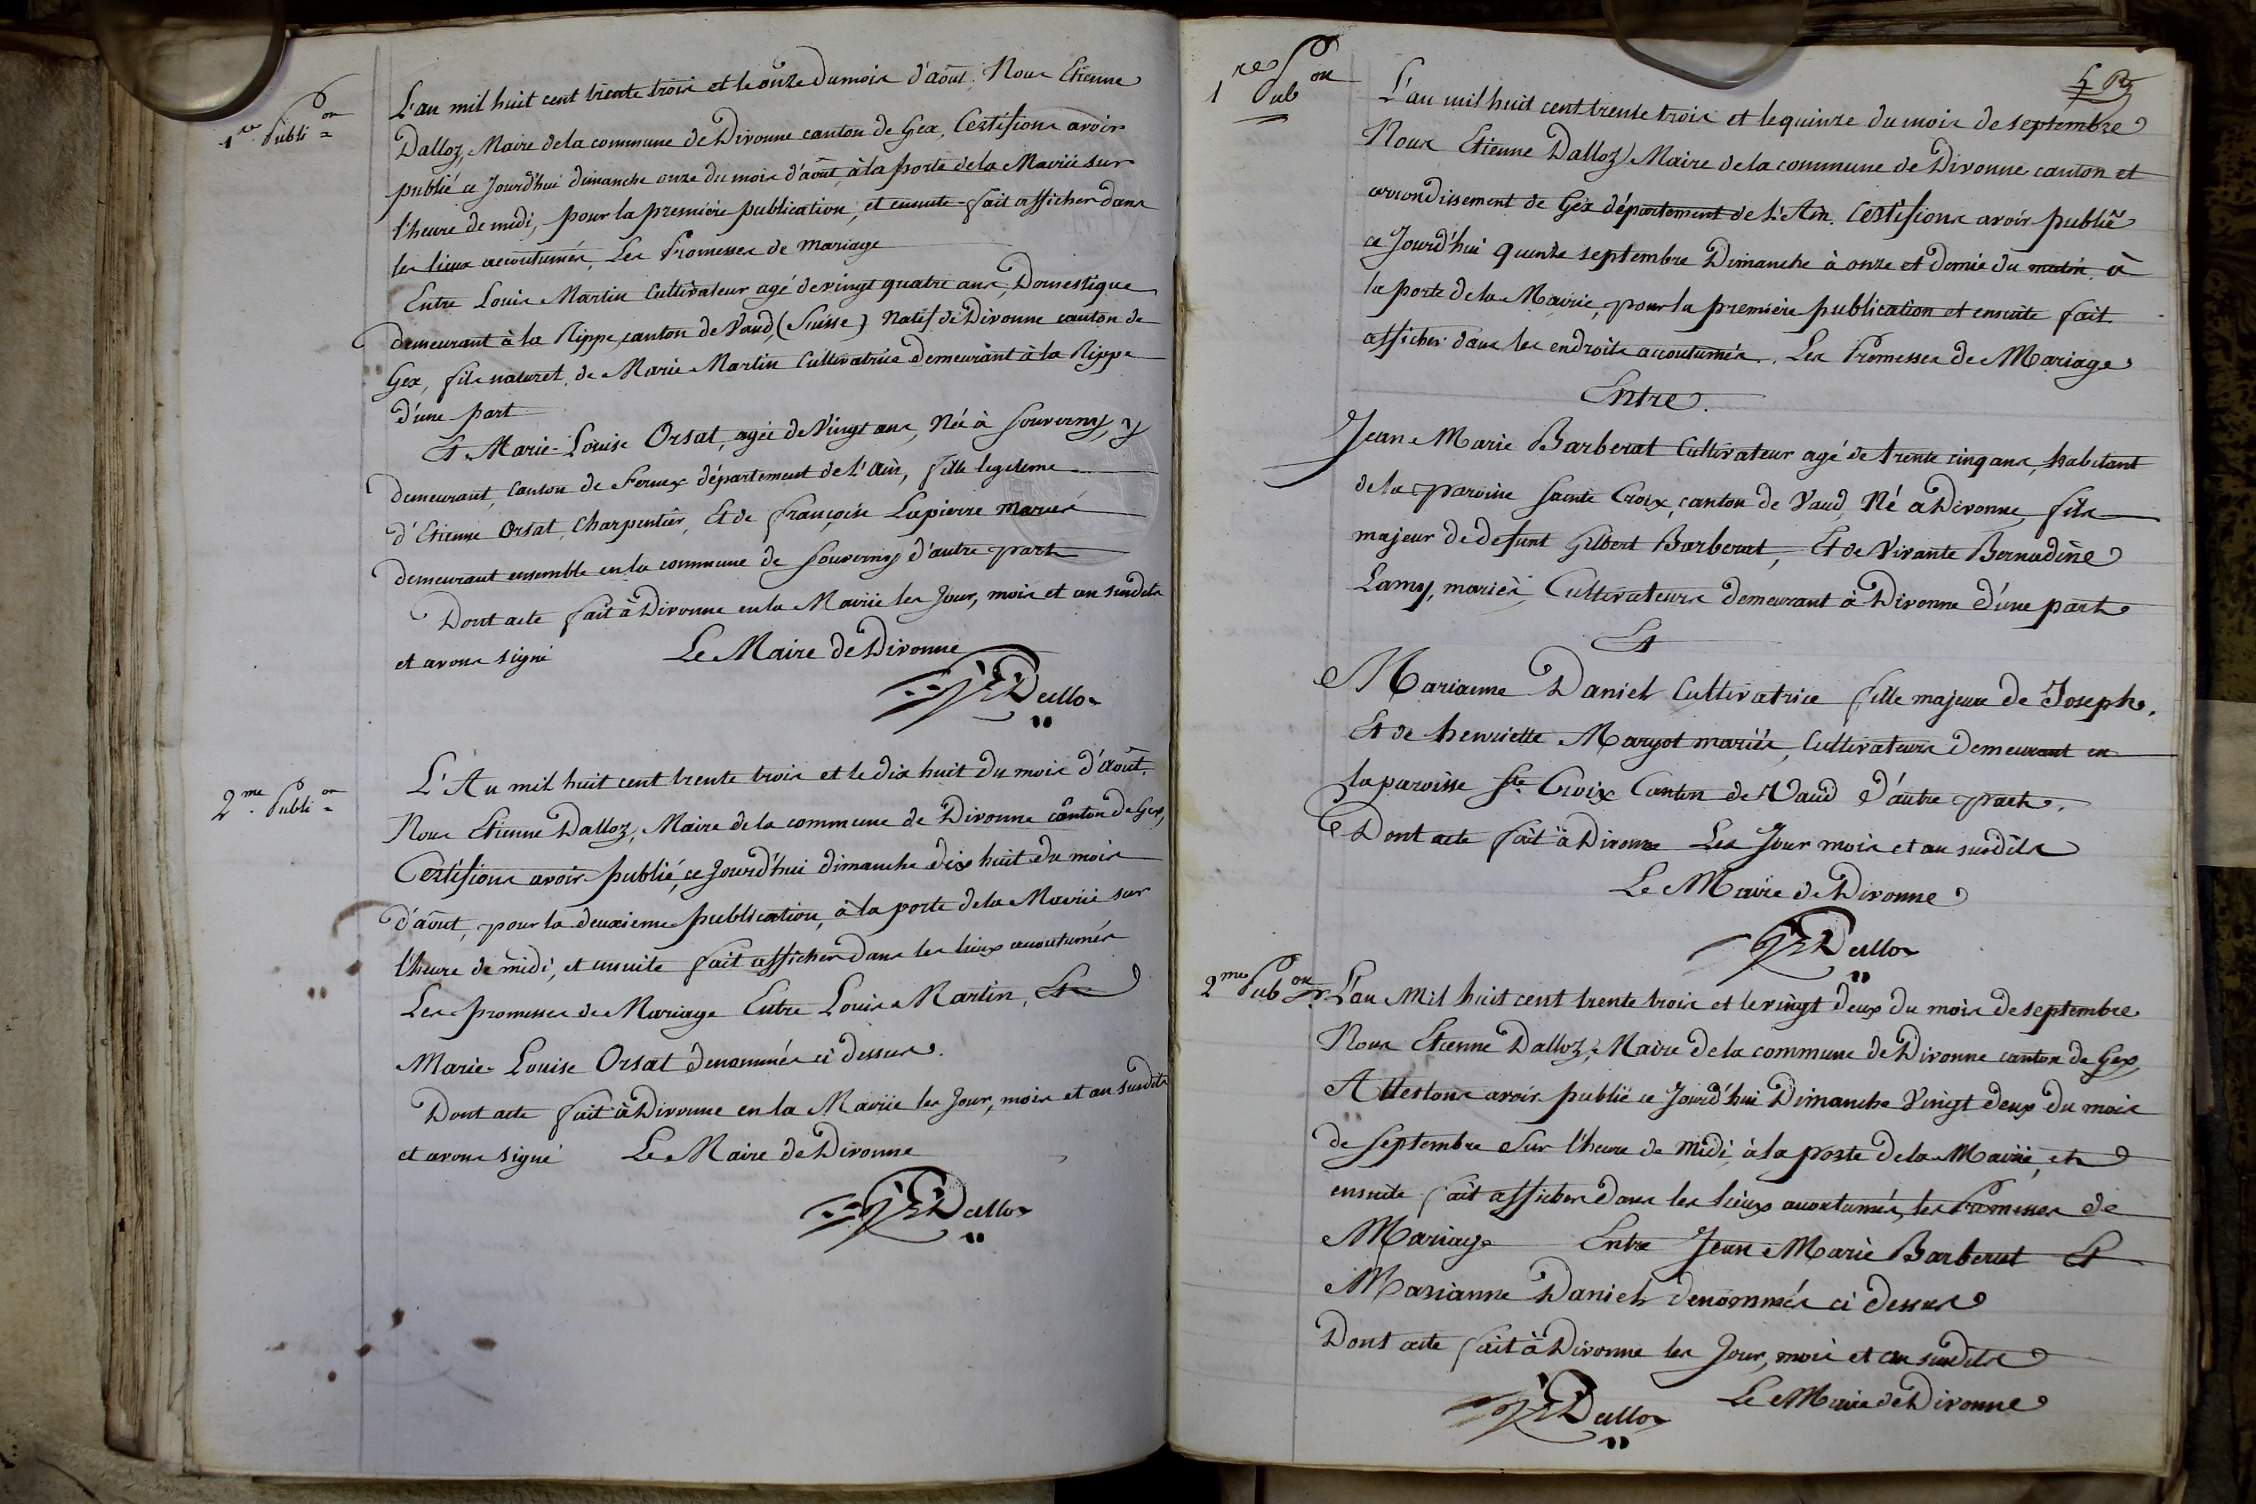 1re Publion
L'an mil huit cent trente trois et le onze du mois d'août. Nous Etienne
Dalloz, Maire de la commune de Divonne canton de Gex, Certifions avoir
publié ce Jourd'hui dimanche onze du mois d'août, à la porte de la Mairie sur
l'heure de midi, pour la première publication, et ensuite fait afficher dans
les lieux accoutumés, Les Promesses de Mariage
Entre Louis Martin Cultivateur agé de vingt quatre ans, Domestique
demeurant à la Rippe, canton de Vaud, (Suisse) Natif de Divonne canton de
Gex, fils naturel, de Marie Martin Cultivatrice demeurant à la Rippe
d'une part
Et Marie-Louise Orsat, agée de Vingt ans, Née à Sauverny, y
demeurant, Canton de Fernex département de l'Ain, fille legitime
d'Etienne Orsat, Charpentier, Et de françoise Lapierre Mariés
demeurant ensemble en la commune de Sauverny d'autre part
Dont acte fait à Divonne en la Mairie les Jour, mois et an susdits
et avons signé Le Maire de Divonne
E Dalloz
2me Publion
L'An mil huit cent trente trois et le dix huit du mois d'août.
Nous Etienne Dalloz, Maire de la commune de Divonne canton de Gex,
Certifions avoir publié, ce Jourd'hui dimanche dix huit du mois
d'août, pour la deuxieme publication, à la porte de la Mairie sur
l'heure de midi, et ensuite fait afficher dans les lieux accoutumés
Les promesses de Mariage Entre Louis Martin, Et
Marie-Louise Orsat dénommés ci dessus.
Dont acte fait à Divonne en la Mairie les Jour, mois et an susdits
et avons signé Le Maire de Divonne
E Dalloz
1re Pubon
L'an mil huit cent trente trois et le quinze du mois de septembre
Nous Etienne Dalloz Maire de la commune de Divonne canton et
arrondissement de Gex département de l'Ain. Certifions avoir publié
ce Jourd'hui quinze septembre Dimanche à onze et demie du matin à
la porte de la Mairie, pour la première publication et ensuite fait
afficher dans les endroits accoutumés. Les Promesses de Mariage
Entre.
Jean-Marie Barberat Cultivateur agé de trente cinq ans, habitant
de la paroisse Sainte Croix, canton de Vaud, Né à Divonne, fils
majeur de defunt Gilbert Barberat, Et de Vivante Bernadine
Lamy, mariés, Cultivateurs demeurant à Divonne d'une part
Et
Marianne Daniel Cultivatrice fille majeure de Joseph,
Et de henriette Margot mariés, Cultivateurs demeurant en
la paroisse Ste Croix Canton de Vaud d'autre part.
Dont acte fait à Divonne Les Jour mois et an susdits
Le Maire de Divonne
E Dalloz
2me Pubon
L'an Mil huit cent trente trois et le vingt deux du mois de septembre
Nous Etienne Dalloz, Maire de la commune de Divonne canton de Gex
Attestons avoir publié ce Jourd'hui Dimanche Vingt deux du mois
de septembre Sur l'heure de Midi, à la porte de la Mairie, et
ensuite fait afficher dans les lieux accoutumés, les Promesses de
Mariage Entre Jean Marie Barberat Et
Marianne Daniel dénommés ci dessus
Dont acte fait à Divonne les Jour, mois et an susdits
Le Maire de Divonne
E Dalloz